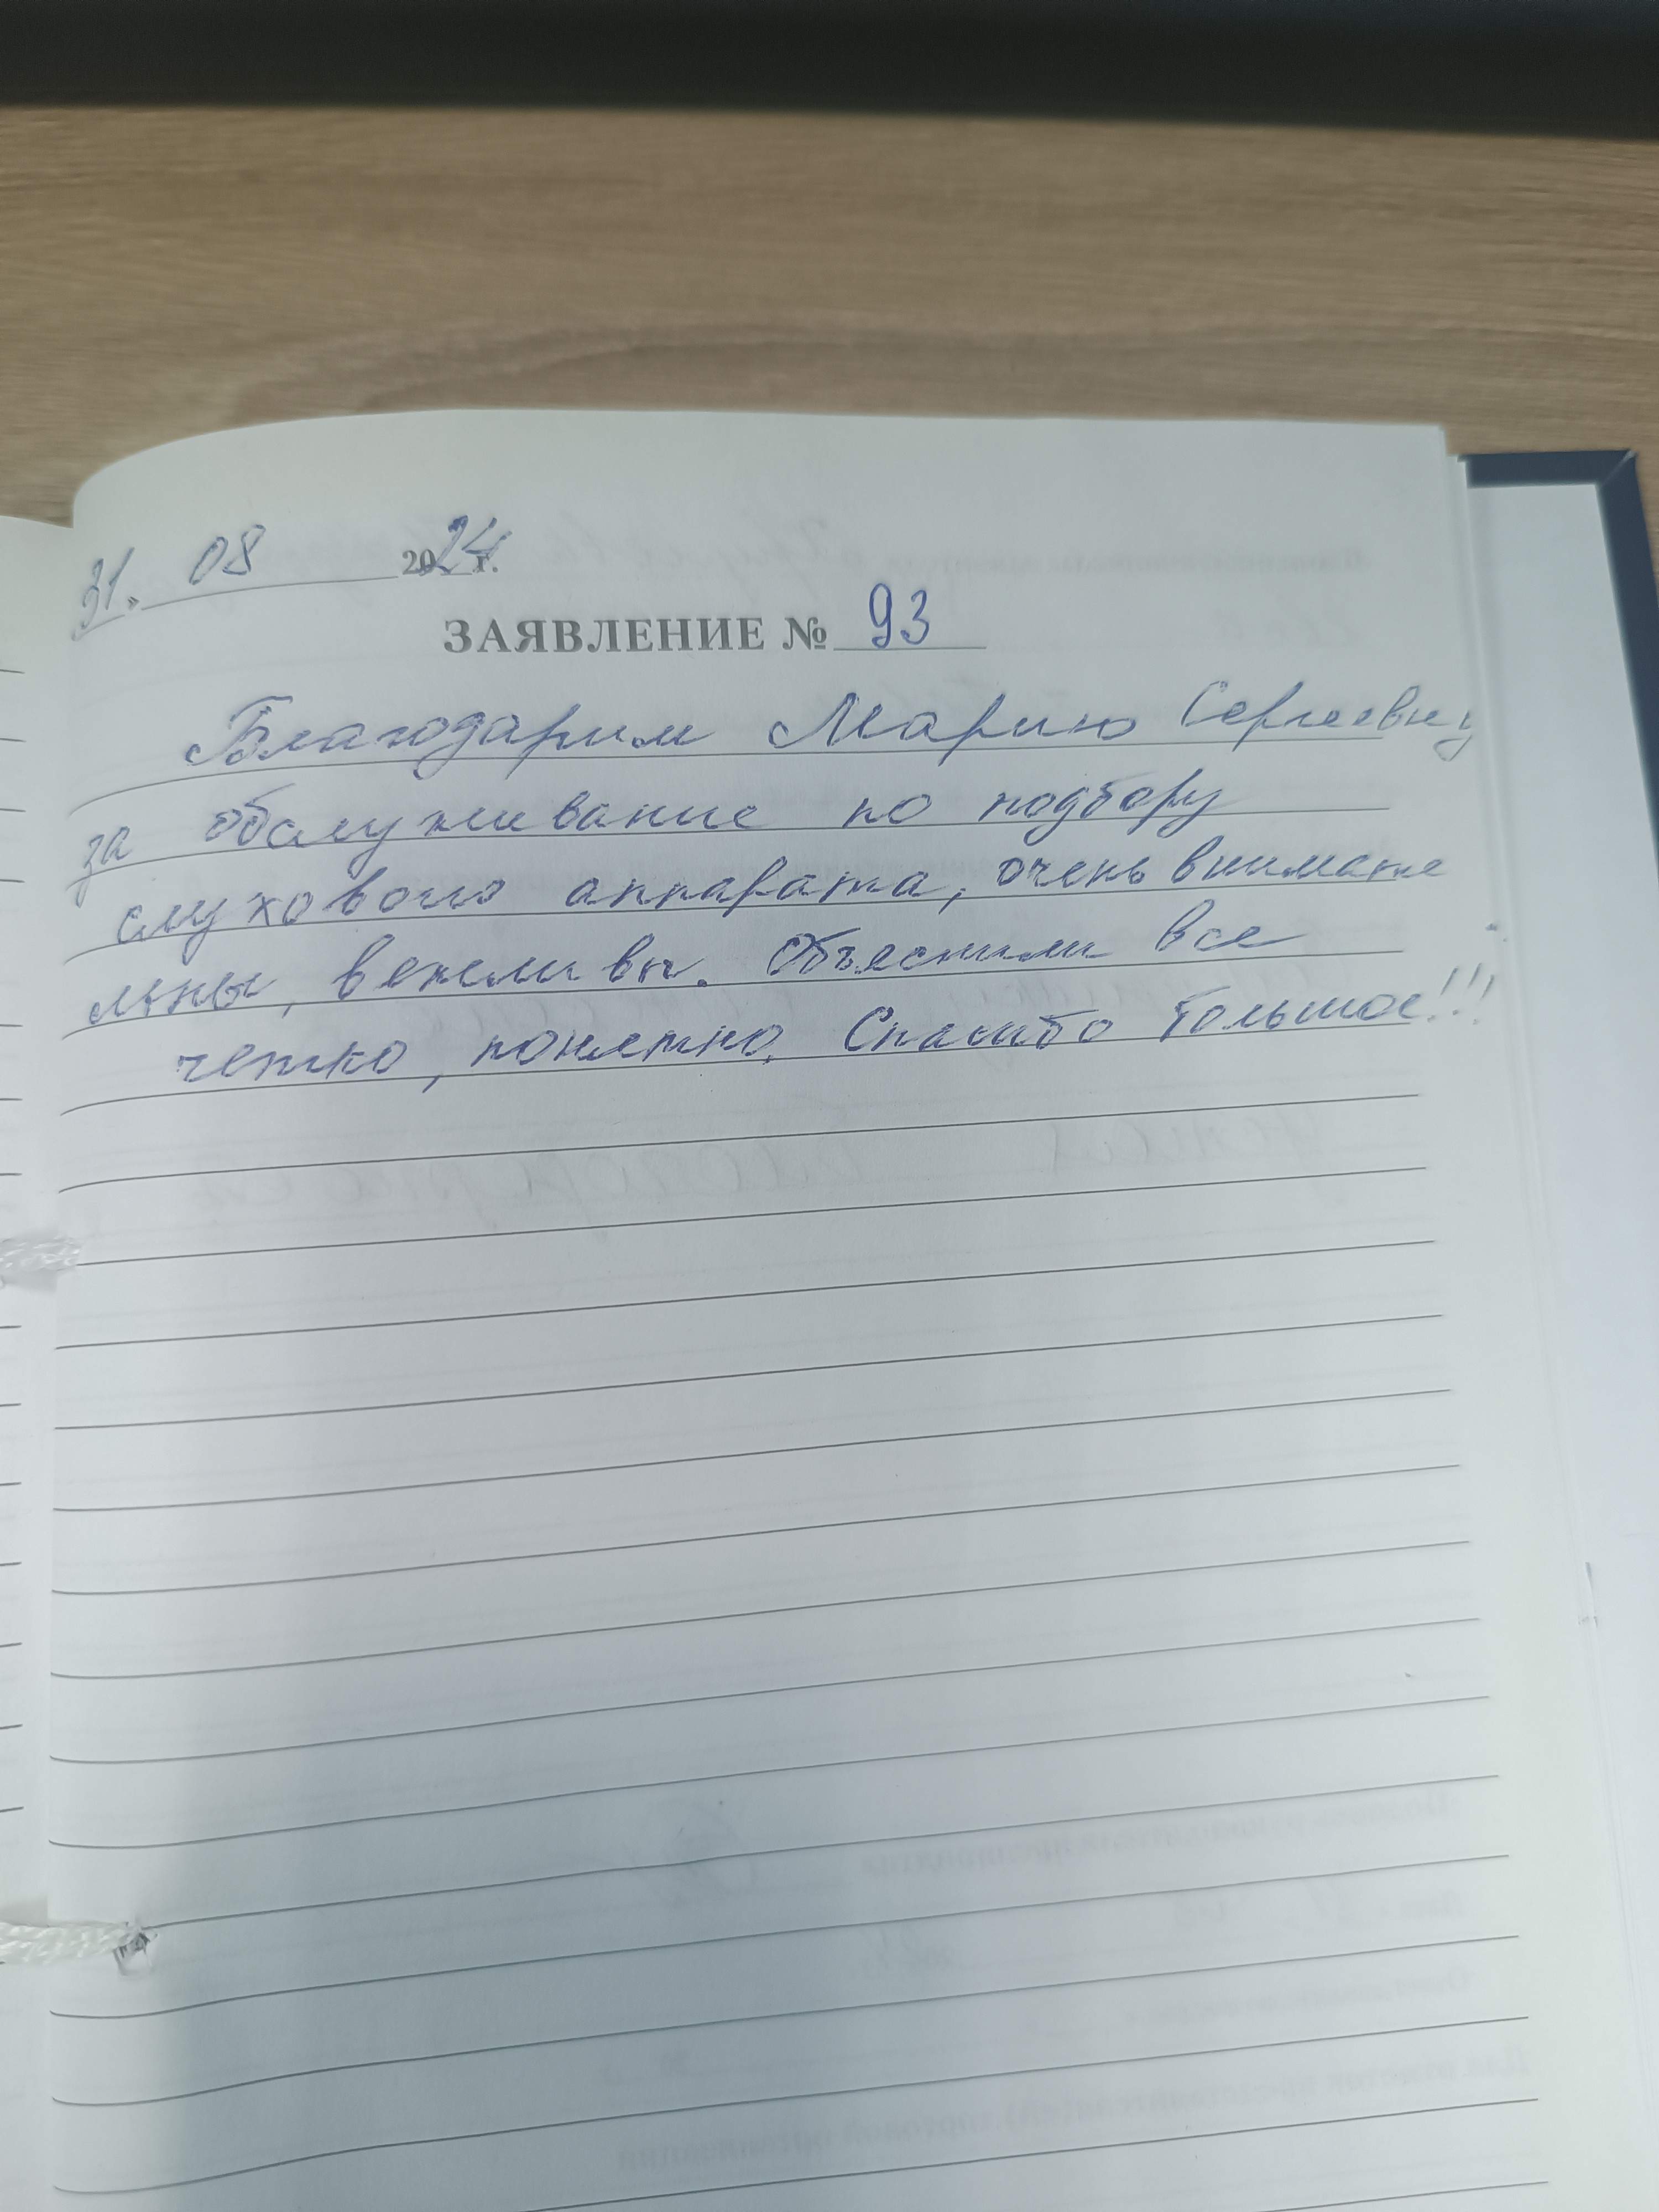 31. 08 2024 г.
ЗАЯВЛЕНИЕ № 93
Благодарим Марию Сергеевну
за обслуживание по подбору
слухового аппарата, очень внимате
льны, вежливы. Объяснили все
четко, понятно. Спасибо большое!!!